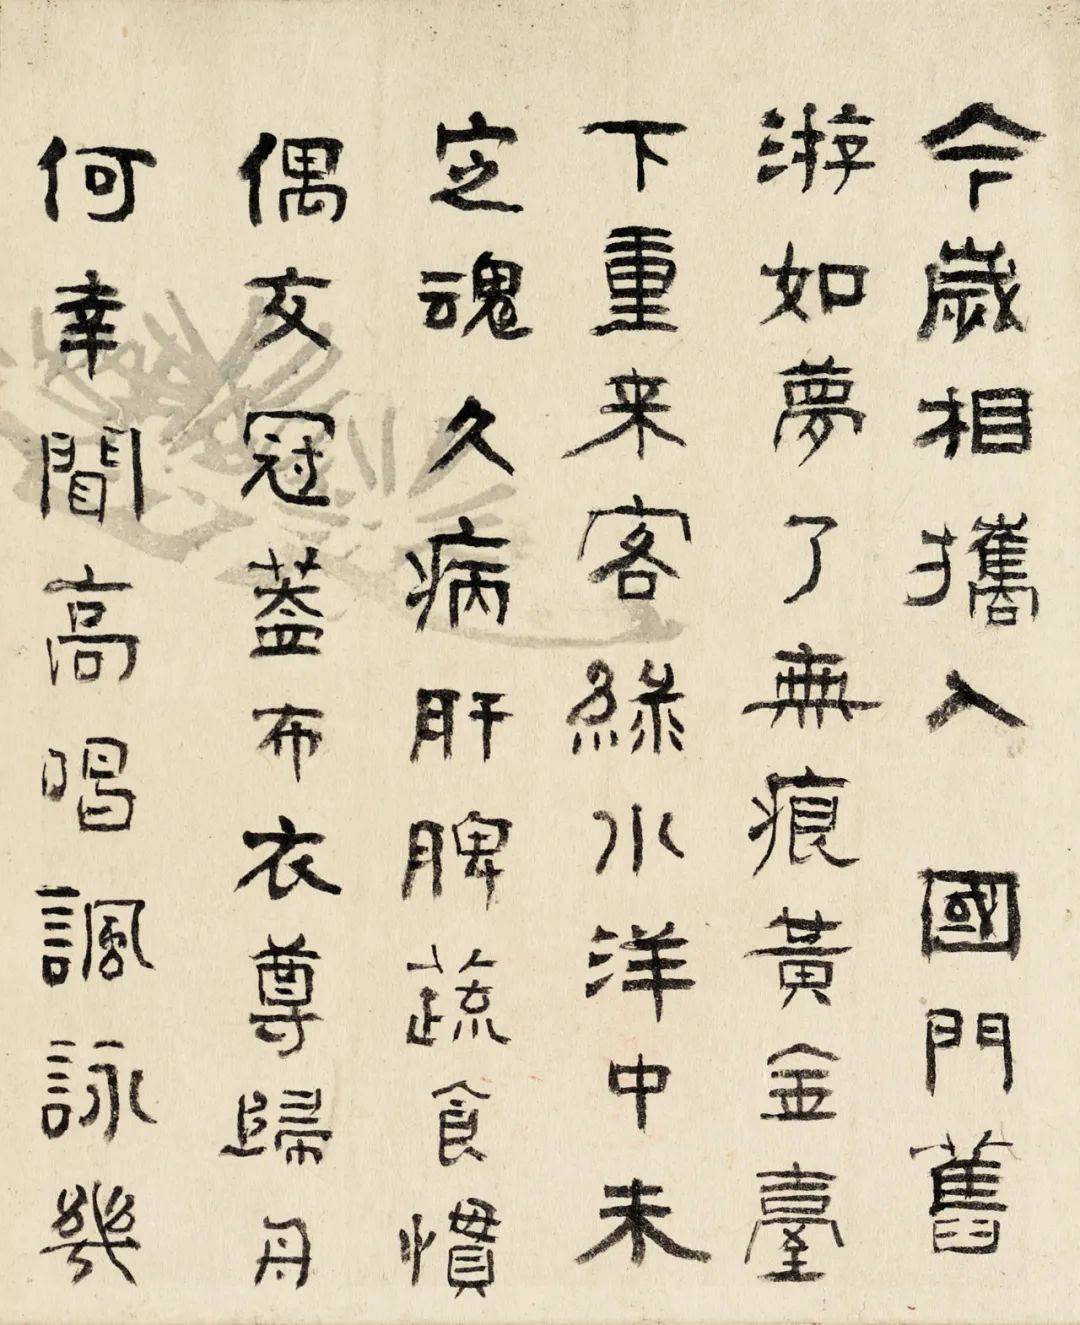 今歲相攜入國門舊
游如夢了無痕黃金臺
下重来客綠水洋中未
定魂久病肝脾蔬食慣
偶交冠蓋布衣尊歸舟
何幸聞高唱諷詠幾